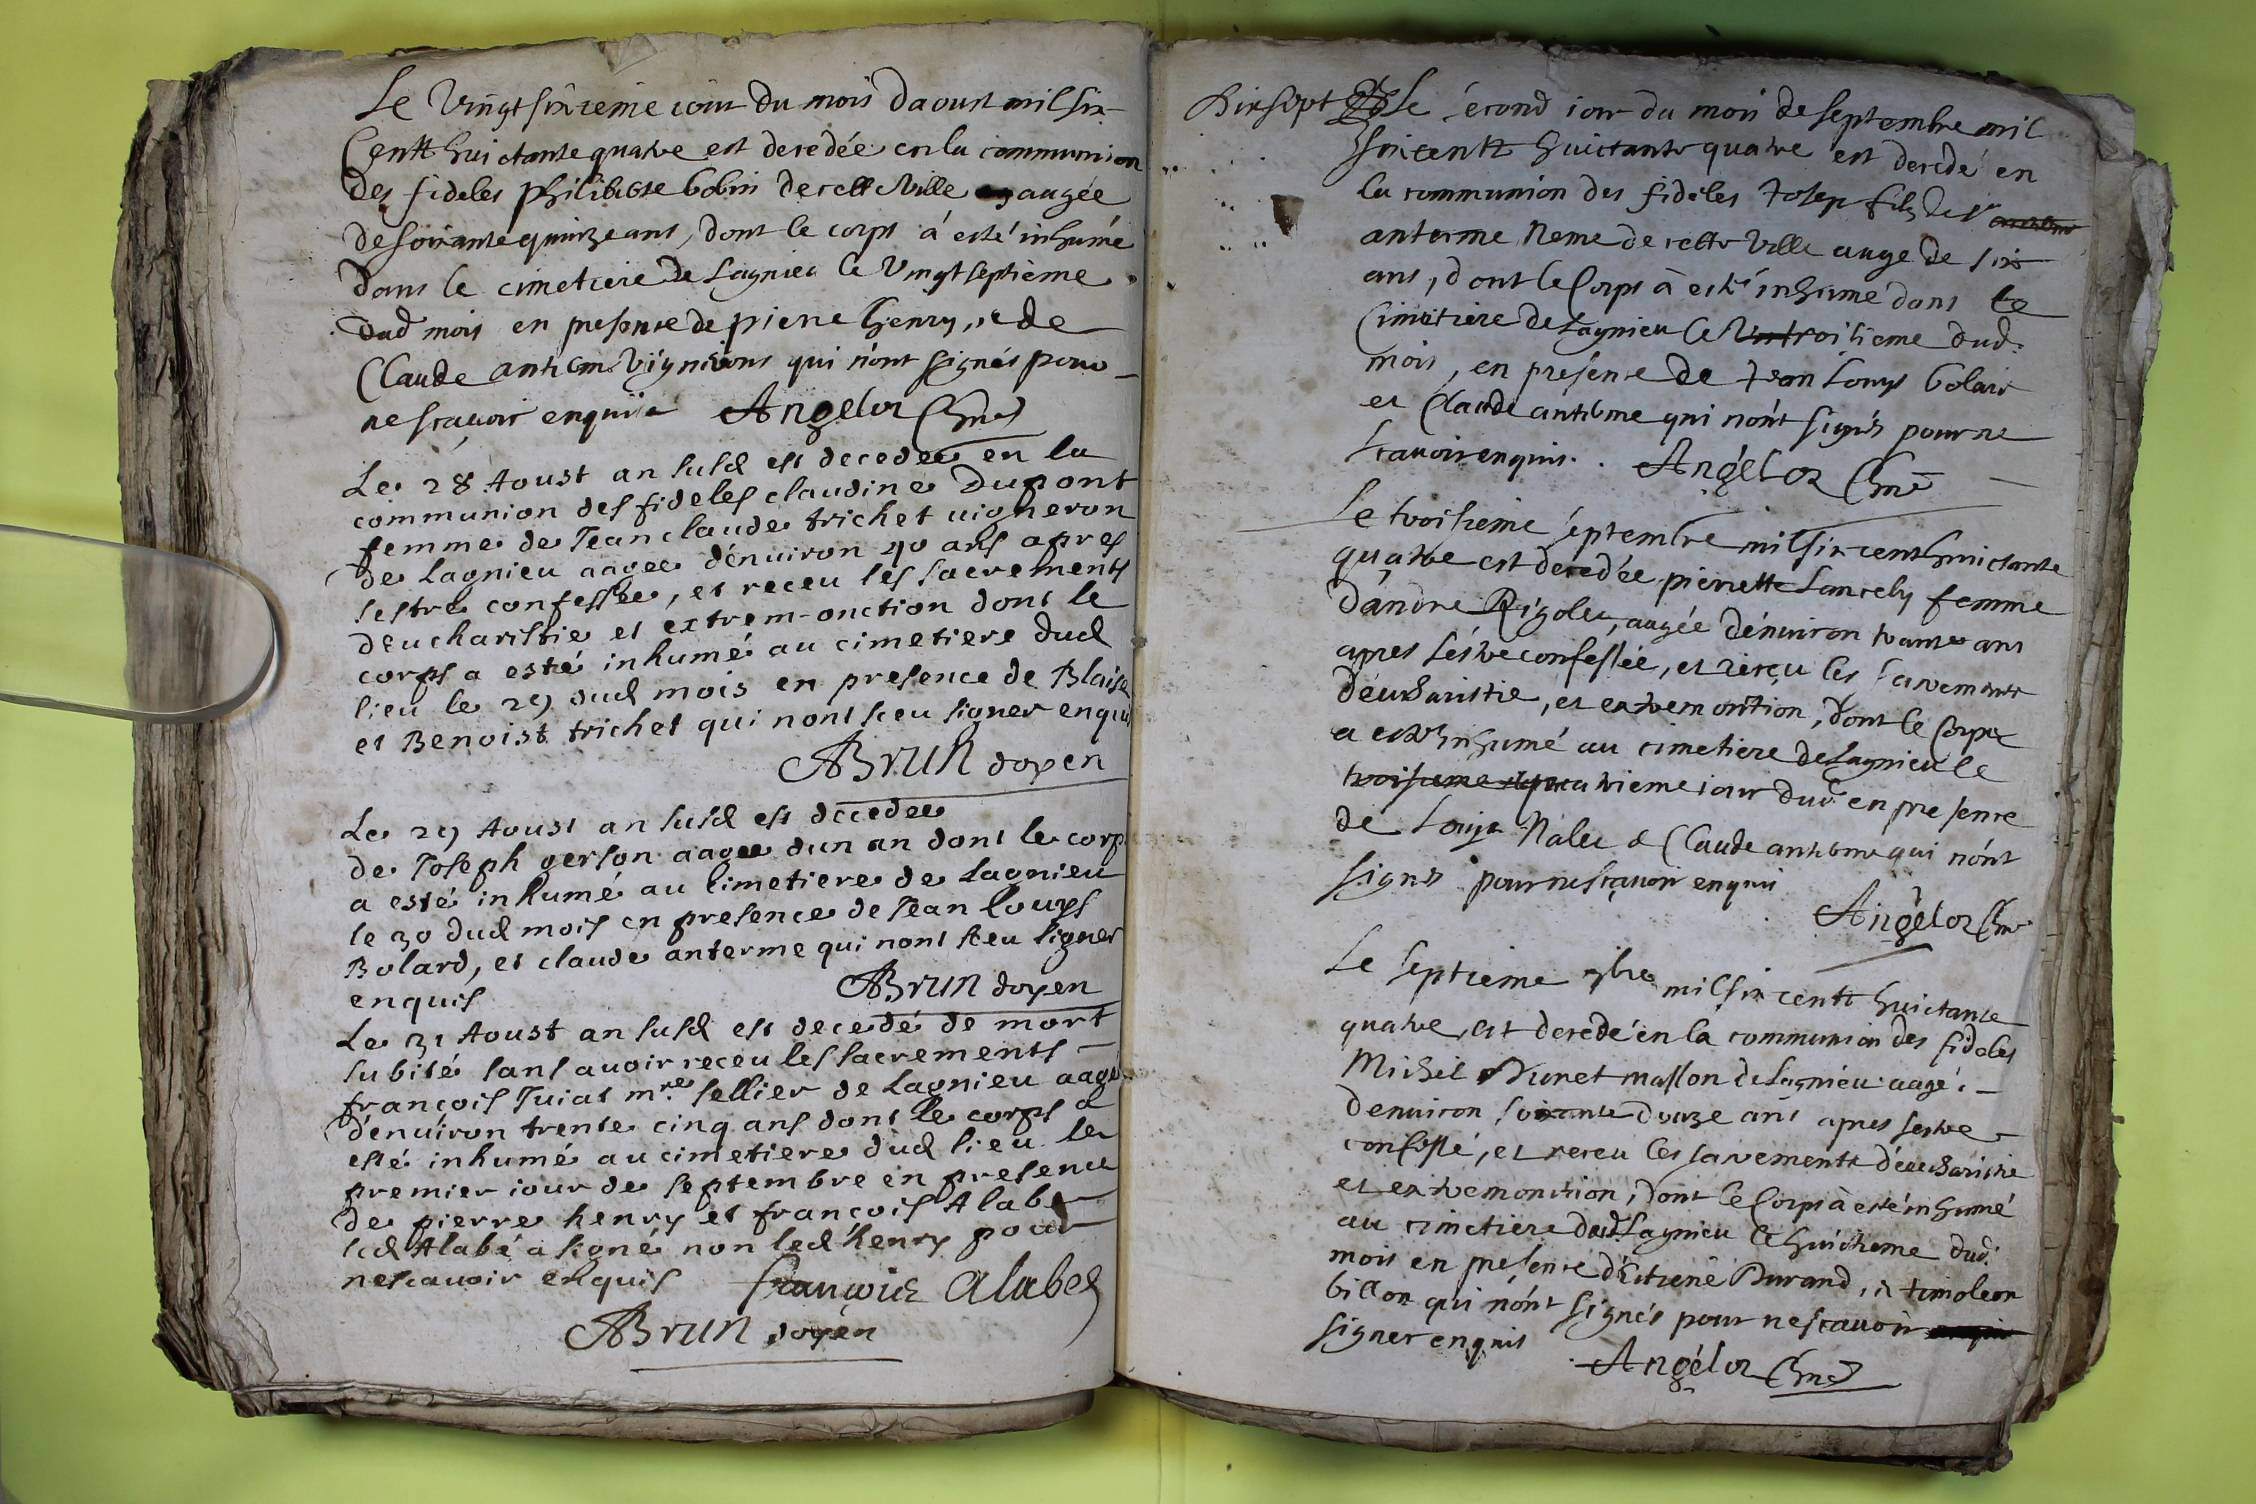 Le vingt sixieme iour du mois daoust mil six
Centz huictante quatre est decedée en la communion
des fideles philiberte bobin de cette ville aagée
de soixante quinze ans, dont le corps à esté inhumé
dans le cimetiere de Lagnieu le vingt septième
dud mois en presence de pierre henry, et de
Claude anterme vignerons qui n'ont signés pour
ne scavoir enquis Angeloz
Le 28 Aoust an susd est decedee en la
communion des fideles claudine Dupont
femme de Jean claude trichet vigneron
de Lagnieu aagee d'enuiron 40 ans apres
sestre confessée, et receu les sacrements
d'eucharistie et extrem-onction dont le
corps a esté inhumé au cimetiere dud
lieu le 29 dud mois en presence de Blaise
et Benoist trichet qui nont sceu signer enquis
ABrun doyen
Le 29 Aoust an susd est decedee
de Joseph gerson aagee dun an dont le corp
a esté inhumé au cimetiere de Lagnieu
le 30 dud mois en presence de Jean louys
Bolard, et claude anterme qui nont sceu signer
enquis ABrun doyen
Le 31 Aoust an susd est decedé de mort
subite sans auoir receu les sacrements
françois Juiat mre sellier de Lagnieu aagé
d'enuiron trente cinq ans dont le corps a
esté inhumé au cimetiere dud lieu le
premier iour de septembre en presence
de pierre henry et françois Alabe
led Alabé a signé non led henry pour
ne scauoir enquis françois Alabe
ABrun doyen
Dixsept Le second iour du mois de septembre mil
sixcentz huictante quatre est decedé en
la communion des fideles Josep filz de sr
anterme de cette ville aage de six
ans, dont le Corps à esté inhumé dans le
Cimetiere de Lagnieu le troisieme dud.
mois, en présence de Jean Louys bolard
et Claude antẽrme qui n'ont signés pour ne
scauoir enquis. Angeloz
Le troisieme septembre mil six centz huictante
quatre est decedée pierrette Lancely femme
dandre Rigolet, aagée d'enuiron trante ans
apres s'éstre confessée, et reçeu les sacrements
d'eucharistie, et extremonction, dont le Corps
a esté inhumé au cimetiere de Lagnieu le
troisieme quatrieme iour dud en presence
de Louys Nalet & Claude anterme qui n'ont
signés pour ne scauoir enquis
Angeloz
Le septieme 7bre mil six centz huictante
quatre, est decedé en la communion des fideles
Michel Brunet masson de Lagnieu aagé
denuiron soixante douze ans apres sestre
confessé, et receu les sacrementz d'eucharistie
et extremonction, dont le Corps à esté inhumé
au cimetiere dud. Lagnieu le huictieme dud.
mois en presence d'Estiene Durand, & timoleon
billon qui n'ont signés pour ne scauoir
signer enquis Angeloz